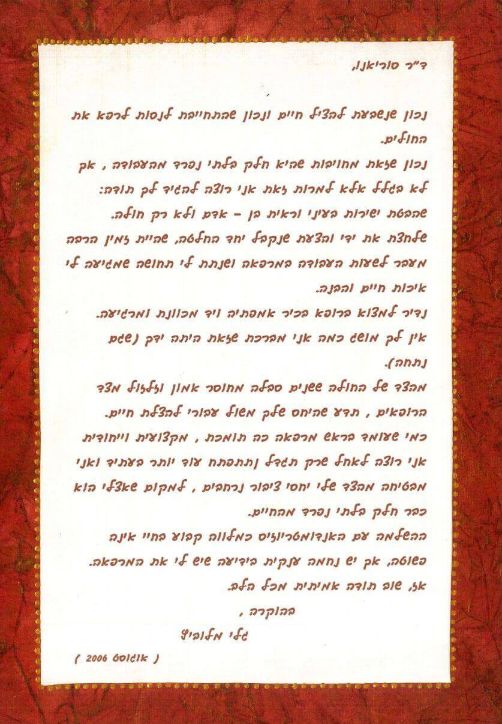 ד"ר סוריאנו,
נכון שנשבעת להציל חיים ונכון שהתחייבת לנסות לרפא את
החולים.
נכון שזאת מחויבות שהיא חלק בלתי נפרד מהעבודה , אך
לא בגלל אלא למרות זאת אני רוצה להגיד לך תודה:
שהבטת ישירות בעיני וראית בן – אדם ולא רק חולה.
שלחצת את ידי והצעת שנקבל יחד החלטה, שהיית זמין הרבה
מעבר לשעות העבודה במרפאה ושנתת לי תחושה שמגיעה לי
איכות חיים והבנה.
נדיר למצוא ברופא בכיר אמפתיה ויד מכוונת ומרגיעה.
אין לך מושג כמה אני מברכת שזאת היתה ידך (שגם
נתחה).
מהצד של החולה ששנים סבלה מחוסר אמון וזלזול מצד
הרופאים , תדע שהיחס שלך משול עבורי להצלת חיים.
כמי שעומד בראש מרפאה כה תומכת , מקצועית וייחודית
אני רוצה לאחל שרק תגדל ותתפתח עוד יותר בעתיד ואני
מבטיחה מהצד שלי יחסי ציבור נרחבים , למקום שאצלי הוא
כבר חלק בלתי נפרד מהחיים.
ההשלמה עם האנדומטריוזיס כמלווה קבוע בחיי אינה
פשוטה, אך יש נחמה ענקית בידיעה שיש לי את המרפאה.
אז, שוב תודה אמיתית מכל הלב.
בהוקרה ,
גלי מלוביץ
( אוגוסט 2006 )